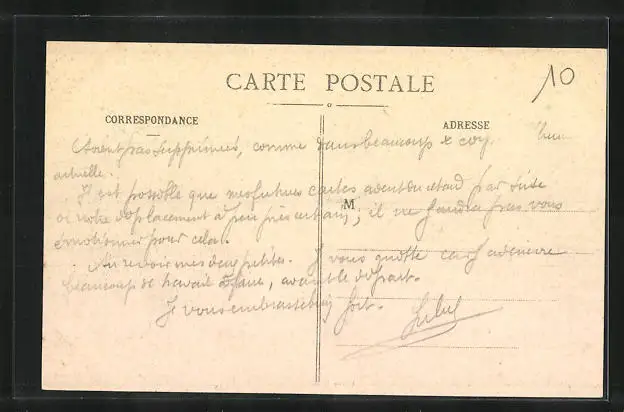 10
CARTE POSTALE
CORRESPONDANCE
ADRESSE
supprimées, comme dans beaucoup de
actuelle.
Il est possible que mes futures cartes aient du retard par suite
de notre déplacement à peu près certain, il ne faudra pas vous
M
émotionner pour cela.
Au revoir mes deux petites. Je vous quitte car j'ai encore
beaucoup de travail à faire, avant le départ.
Je vous embrasse bien fort.